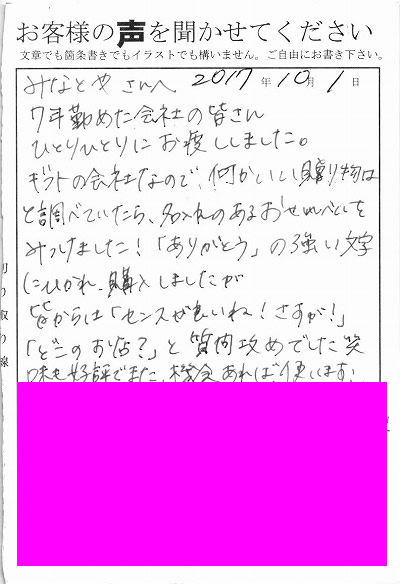 お客様の声を聞かせてください
文章でも箇条書きでもイラストでも構いません。ご自由にお書き下さい。
みなとやさんへ 2017年10月1日
7年勤めた会社の皆さん
ひとりひとりにお渡ししました。
ギフトの会社なので、何かいい贈り物は
と調べていたら、名入れのあるおせんべいを
みつけました!「ありがとう」の強い文字
にひかれ、購入しましたが
皆からは「センスが良いね!さすが!」
「どこのお店?」と質問攻めでした笑
味も好評でまた、機会あれば、使います!
切り取り線